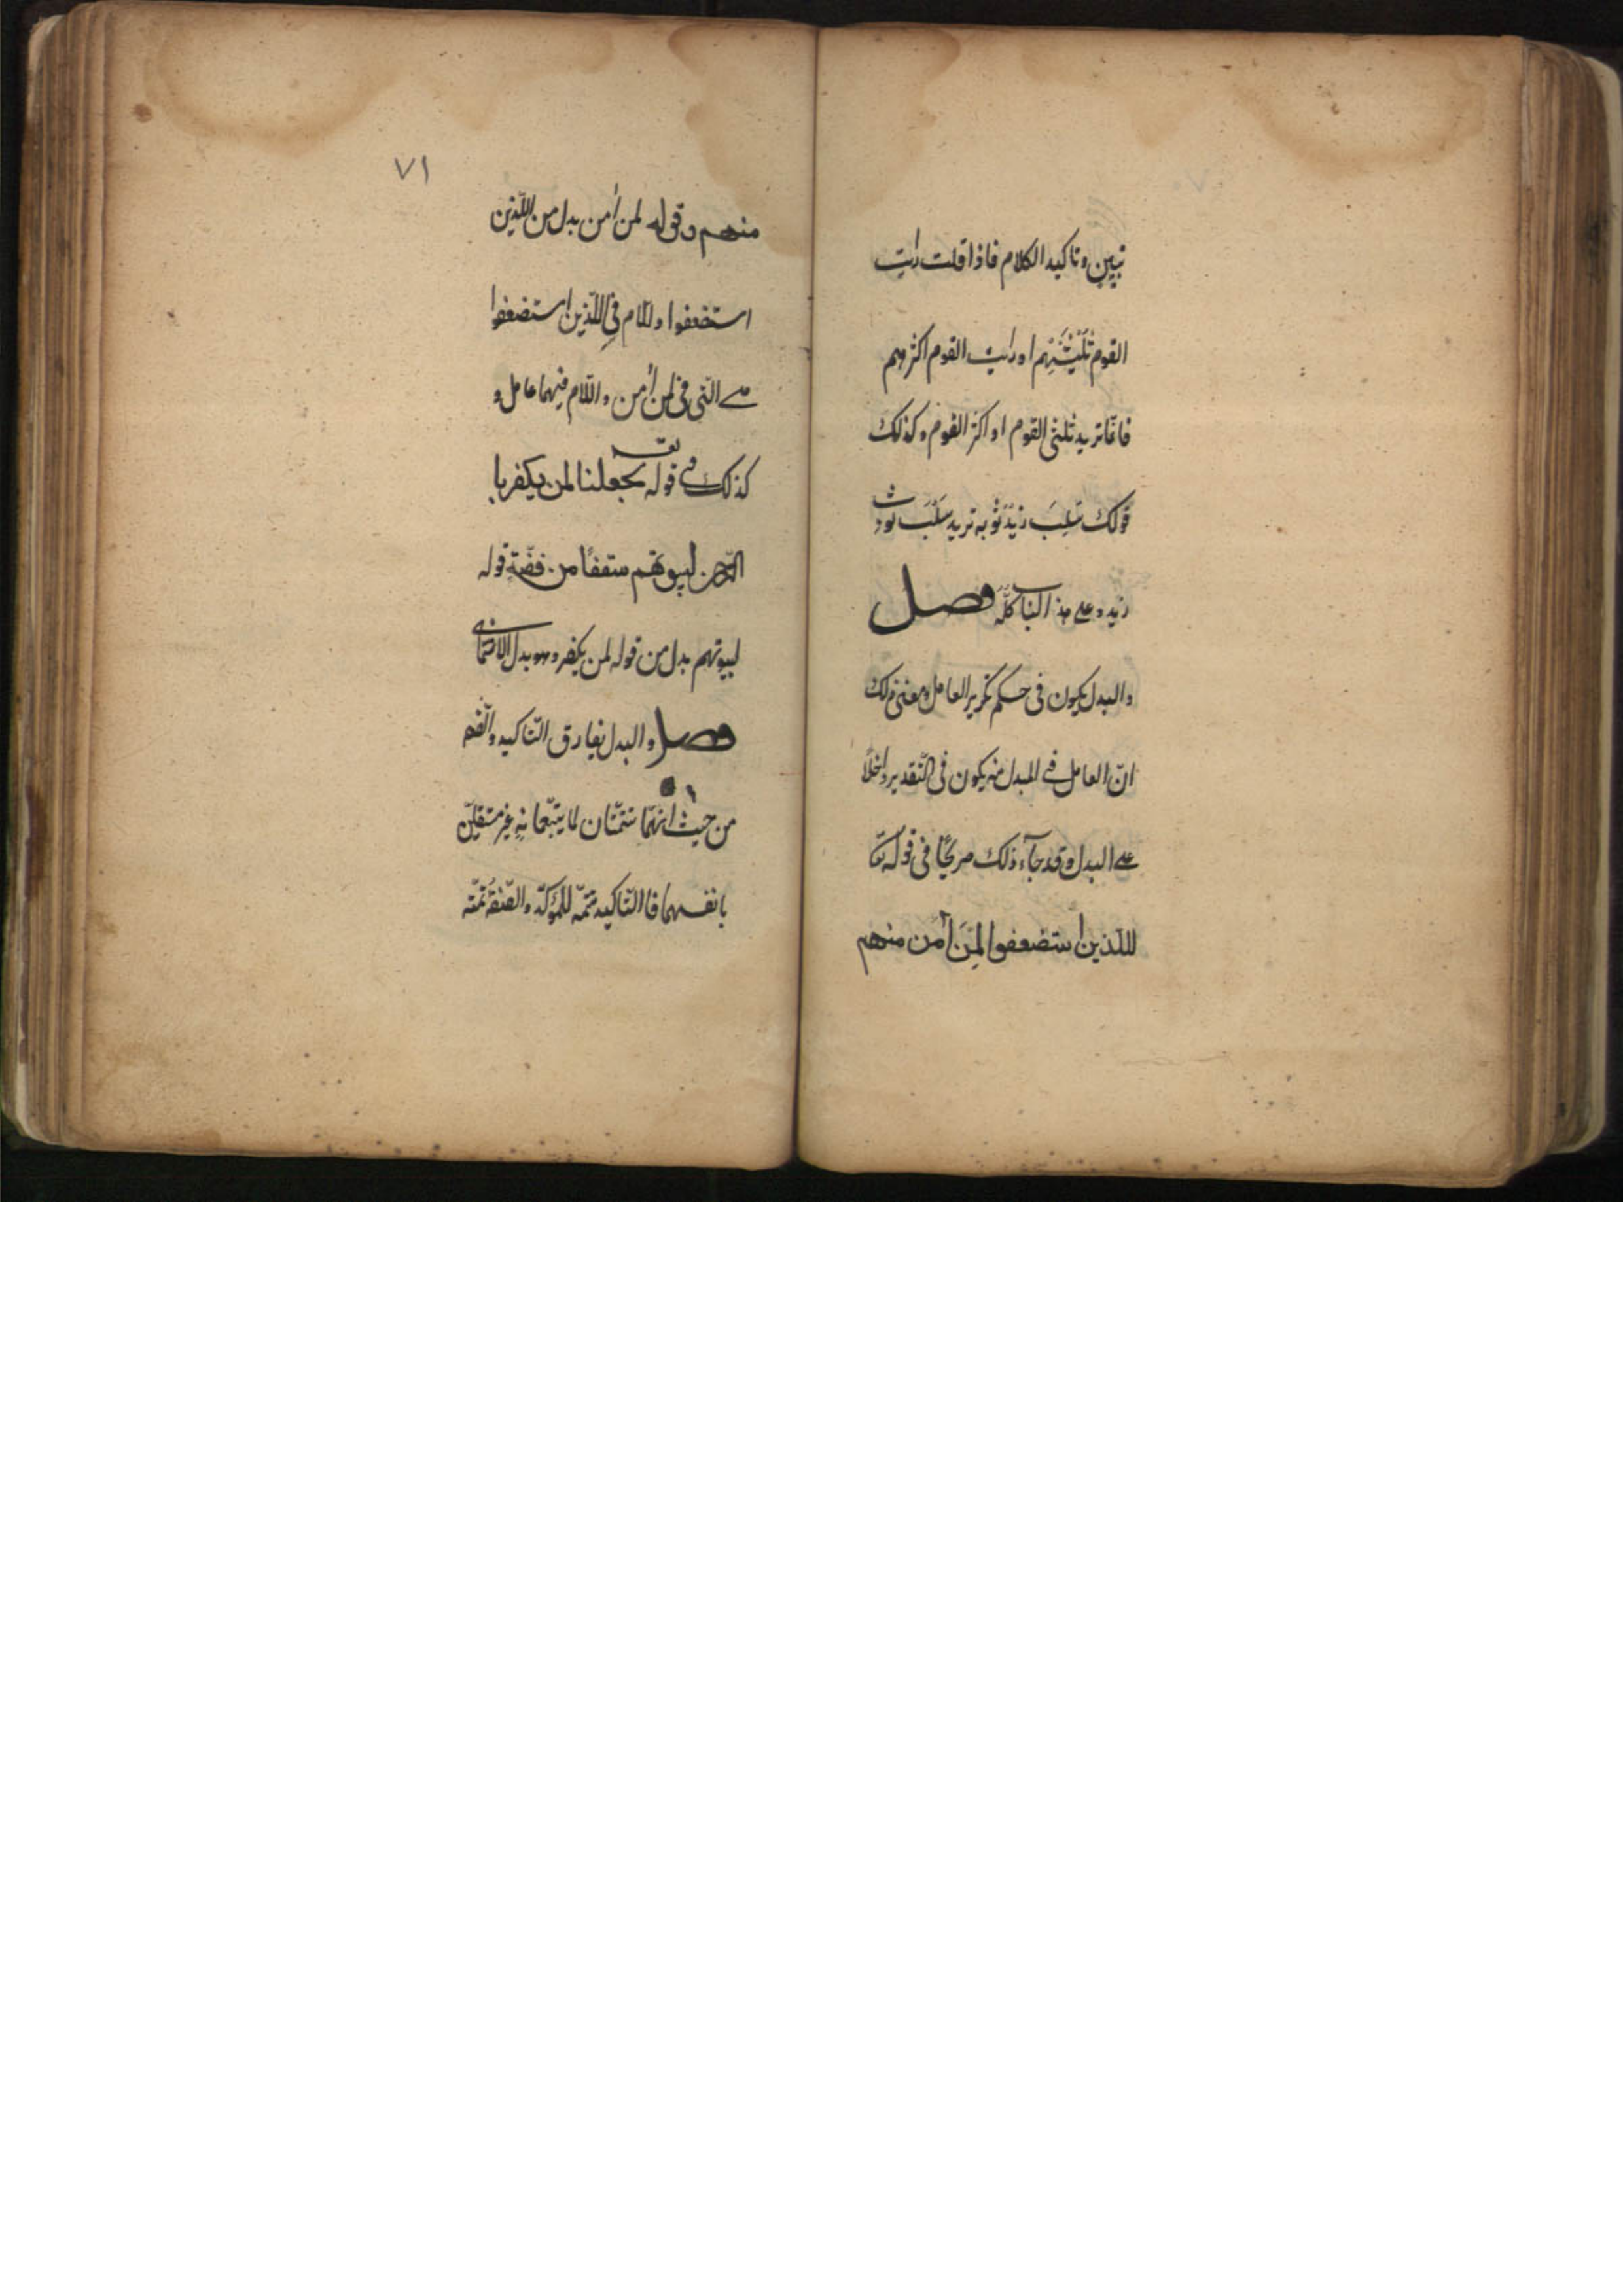 تبيين وتاكيد الكلام فاذا قلت رايت
القوم ثلثيهم او رايت القوم اكثرهم
فانّما تريد ثلثي القوم او اكثر القوم وكذلك
قولك سُلِبَ زيدٌ ثوبه تريد سُلِبَ ثوب
زيد وعلى هذا الباب كلّه فصل
والبدل يكون فى حكم تكرير العامل ومعنى ذلك
انّ العامل فى المبدل منه يكون فى التّقدير داخلًا
على البدل وقد جآء ذلك صريحًا فى قوله تعا
للّذين استضعفوا لِمَن اٰمن منهم
٧١
منهم وقوله لمن اٰمن بدل من الّذين
استضعفوا واللام فى للّذين استضعفوا
هى الّتى فى لمن اٰمن واللّام فيهما عامل و
كذلك فى قوله تعـ لجعلنا لمن يكفر با
الرّحمن لبيوتهم سقفًا من فضّةٍ قوله
لبيوتهم بدل من قوله لمن يكفر وهو بدل الاشتمال
فصل والبدل يفارق التّاكيد والصّفه
من حيث انّهما تتمّتان لما يتبعانه غير مستقلّين
بانفسهما فاالتّاكيد تتمّه للمؤكّد والصّفة تتمّه